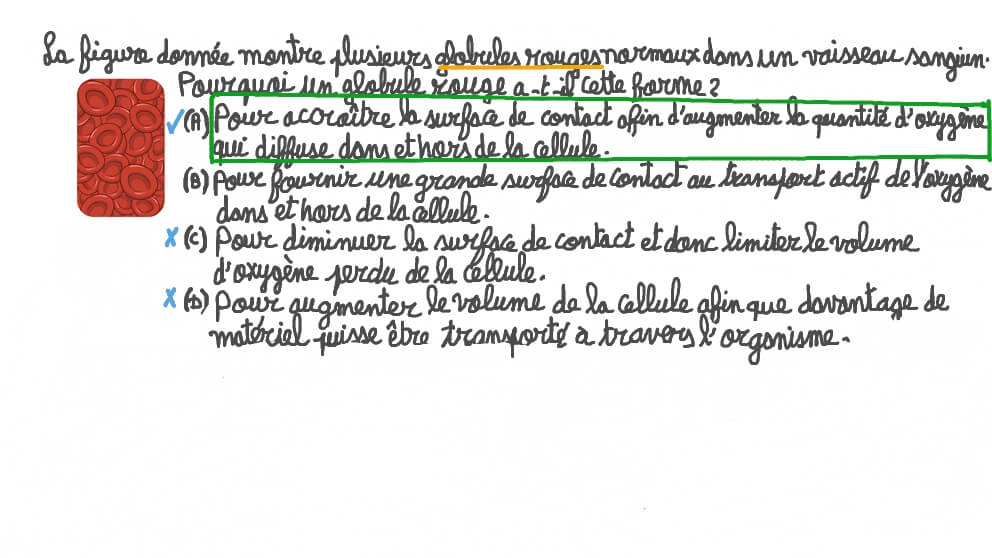 La figure donnée montre plusieurs globules rouges normaux dans un vaisseau sanguin.
Pourquoi un globule rouge a-t-il cette forme ?
(A) Pour accroître la surface de contact afin d'augmenter la quantité d'oxygène
qui diffuse dans et hors de la cellule.
(B) Pour fournir une grande surface de contact au transport actif de l'oxygène
dans et hors de la cellule.
(C) Pour diminuer la surface de contact et donc limiter le volume
d'oxygène perdu de la cellule.
(D) Pour augmenter le volume de la cellule afin que davantage de
matériel puisse être transporté à travers l'organisme.